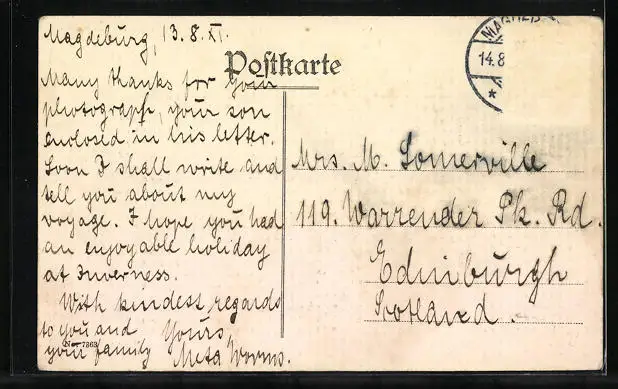 Magdeburg, 13. 8. XI.
Postkarte
Many thanks for your
photograph, your son
enclosed in his letter.
Soon I shall write and
tell you about my
voyage. I hope you had
an enjoyable holiday
at Inverness.
With kindest regards
to you and Yours
your family Meta Worms.
No. 7363
MAGDEB
14.8
*
Mrs. M. Somerville
119. Warrender Pk. Rd.
Edinburgh
Scotland.